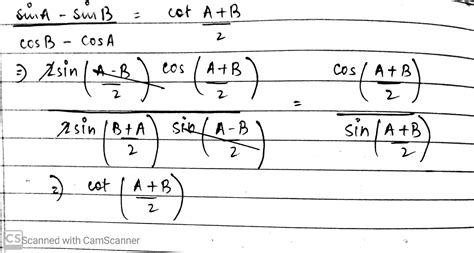 sinA - sinB = cot A+B
cosB - cosA 2
⇒ 2sin (A-B/2) cos (A+B/2) = cos (A+B/2)
2sin (B+A/2) sin (A-B/2) sin (A+B/2)
⇒ cot (A+B/2)
CS Scanned with CamScanner